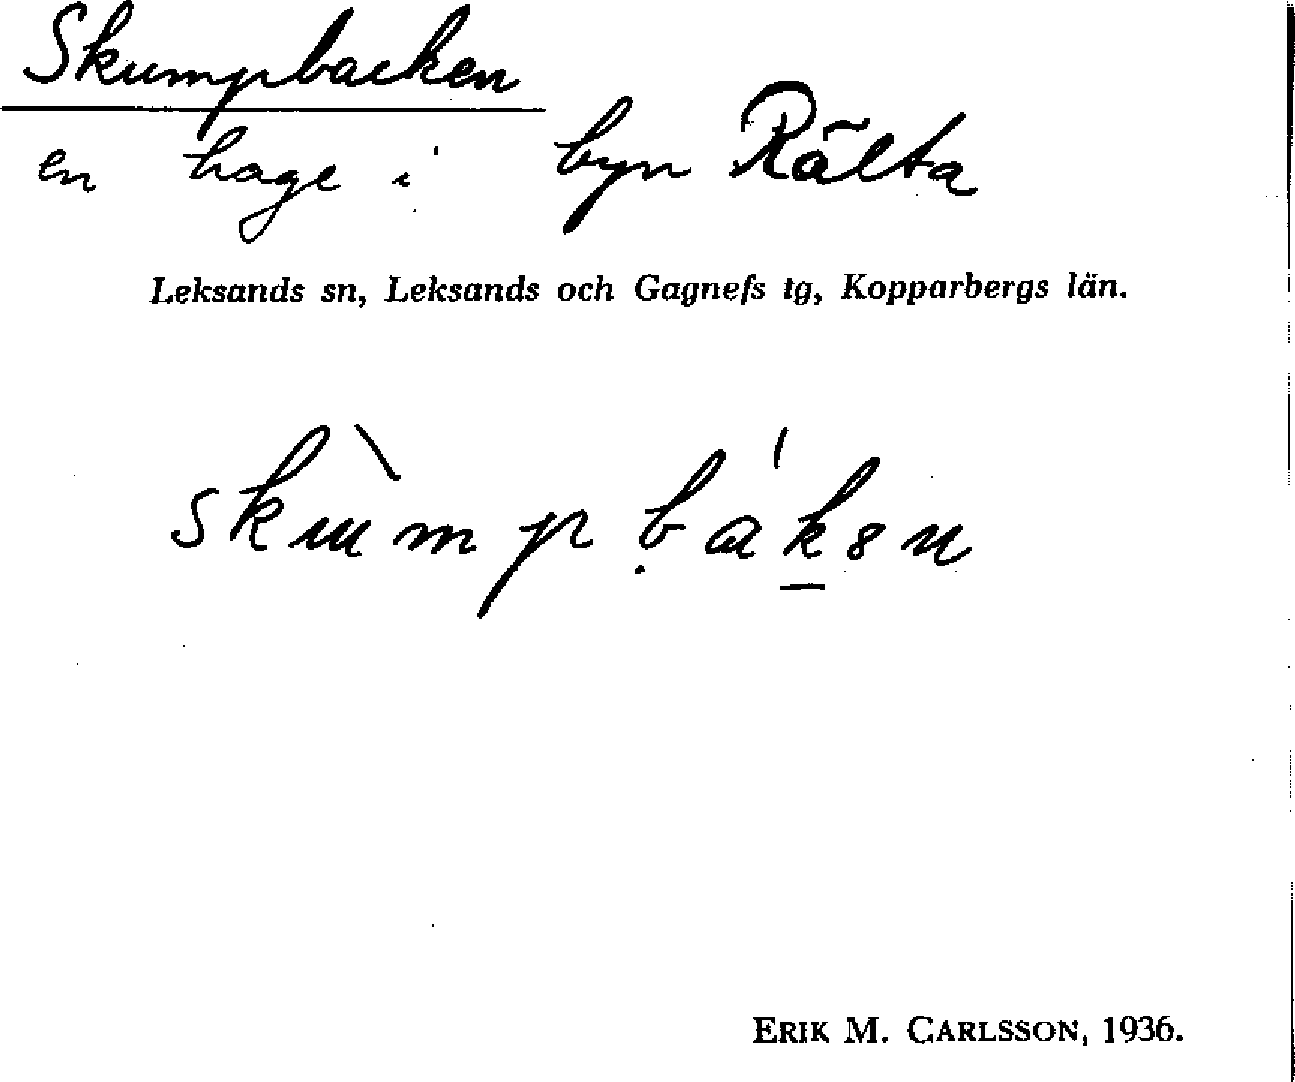 Skumpbacken
en hage i byn Rälta
Leksands sn, Leksands och Gagnefs tg, Kopparbergs län.
skùmpḅáḵ8n
ERIK M. CARLSSON, 1936.